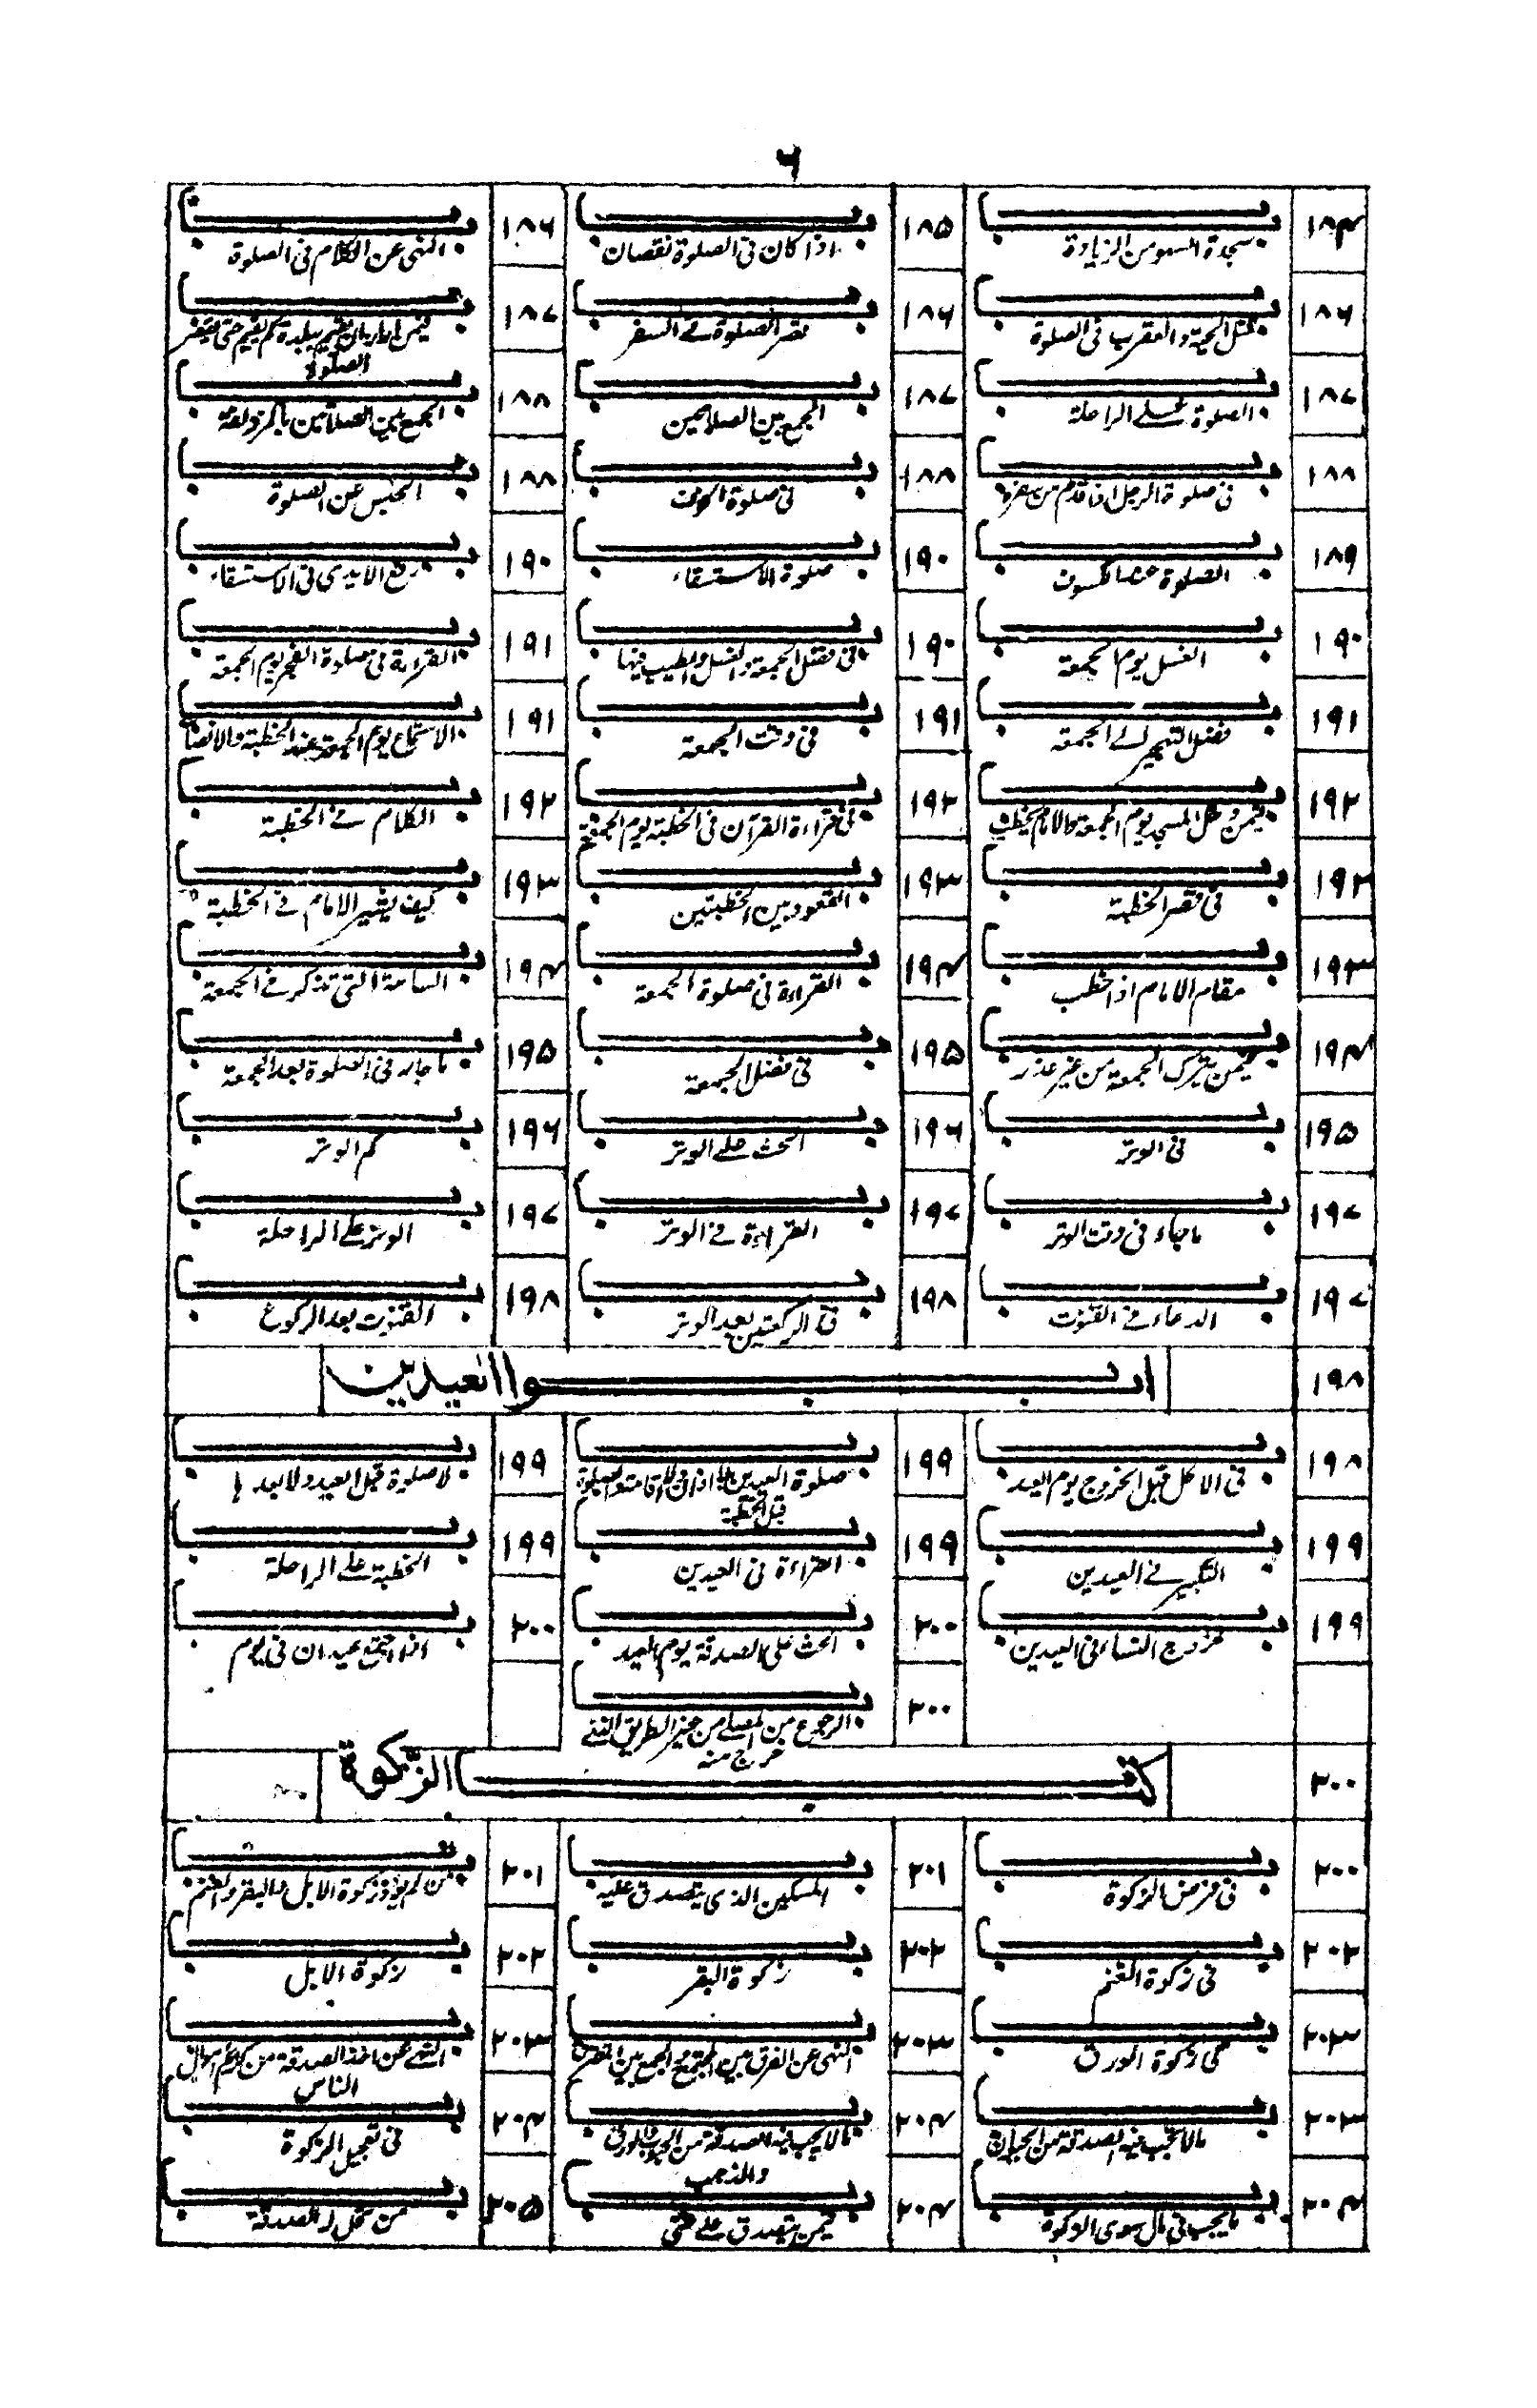 ٦
١٨٤ باب سجدة السهو من الزيادة ١٨٥ باب اذا كان فى الصلوة نقصان ١٨٦ باب النهى عن الكلام فى الصلوة
١٨٦ باب قتل الحية والعقرب فى الصلوة ١٨٦ باب قصر الصلوة فى السفر ١٨٧ باب فيمن اراد ان يقيم ببلدة كم يقيم حتى يقصر الصلوة
١٨٧ باب الصلوة على الراحلة ١٨٧ باب الجمع بين الصلاتين ١٨٨ باب الجمع بين الصلاتين بالمزدلفة
١٨٨ باب فى صلوة الرجل اذا قدم من سفره ١٨٨ باب فى صلوة الخوف ١٨٨ باب الحبس عن الصلوة
١٨٩ باب الصلوة عند الكسوف ١٩٠ باب صلوة الاستسقاء ١٩٠ باب رفع الايدى فى الاستسقاء
١٩٠ باب الغسل يوم الجمعة ١٩٠ باب فى فضل الجمعة والغسل والطيب فيها ١٩١ باب القراءة فى صلوة الفجر يوم الجمعة
١٩١ باب فضل التهجير الى الجمعة ١٩١ باب فى وقت الجمعة ١٩١ باب الاستماع يوم الجمعة عند الخطبة والانصات
١٩٢ باب فيمن دخل المسجد يوم الجمعة والامام يخطب ١٩٢ باب فى قراءة القرآن فى الخطبة يوم الجمعة ١٩٢ باب الكلام فى الخطبة
١٩٣ باب فى قصر الخطبة ١٩٣ باب القعود بين الخطبتين ١٩٣ باب كيف يشير الامام فى الخطبة
١٩٣ باب مقام الامام اذا خطب ١٩٤ باب القراءة فى صلوة الجمعة ١٩٤ باب الساعة التى تذكر فى الجمعة
١٩٤ باب فيمن يترك الجمعة من غير عذر ١٩٥ باب فى فضل الجمعة ١٩٥ باب ما جاء فى الصلوة بعد الجمعة
١٩٥ باب فى الوتر ١٩٦ باب الحث على الوتر ١٩٦ باب كم الوتر
١٩٧ باب ما جاء فى وقت الوتر ١٩٧ باب القراءة فى الوتر ١٩٧ باب الوتر على الراحلة
١٩٧ باب الدعاء فى القنوت ١٩٨ باب فى الركعتين بعد الوتر ١٩٨ باب القنوت بعد الركوع
١٩٨ ابواب العيدين
١٩٨ باب فى الاكل قبل الخروج يوم العيد ١٩٩ باب صلوة العيدين بلا اذان ولا اقامة والصلوة قبل الخطبة ١٩٩ باب لا صلوة قبل العيد ولا بعدها
١٩٩ باب التكبير فى العيدين ١٩٩ باب القراءة فى العيدين ١٩٩ باب الخطبة على الراحلة
١٩٩ باب خروج النساء فى العيدين ٢٠٠ باب الحث على الصدقة يوم العيد ٢٠٠ باب اذا اجتمع عيدان فى يوم
٢٠٠ باب الرجوع من المصلى من غير الطريق الذى خرج منه
٢٠٠ كتاب الزكوة
٢٠٠ باب فى فرض الزكوة ٢٠١ باب المسكين الذى يتصدق عليه ٢٠١ باب من لم يؤد زكوة الابل والبقر والغنم
٢٠٢ باب فى زكوة الغنم ٢٠٢ باب زكوة البقر ٢٠٢ باب زكوة الابل
٢٠٣ باب فى زكوة الورق ٢٠٣ باب النهى عن الفرق بين المجتمع والجمع بين المتفرق ٢٠٣ باب النهى عن اخذ الصدقة من كرائم اموال الناس
٢٠٣ باب مالا تجب فيه الصدقة من الحيوان ٢٠٤ باب مالا يجب فيه الصدقة من الحبوب والورق والذهب ٢٠٤ باب فى تعجيل الزكوة
٢٠٤ باب ما يجب فى مال سوى الزكوة ٢٠٤ باب فيمن يتصدق على غنى ٢٠٥ باب من تحل له الصدقة